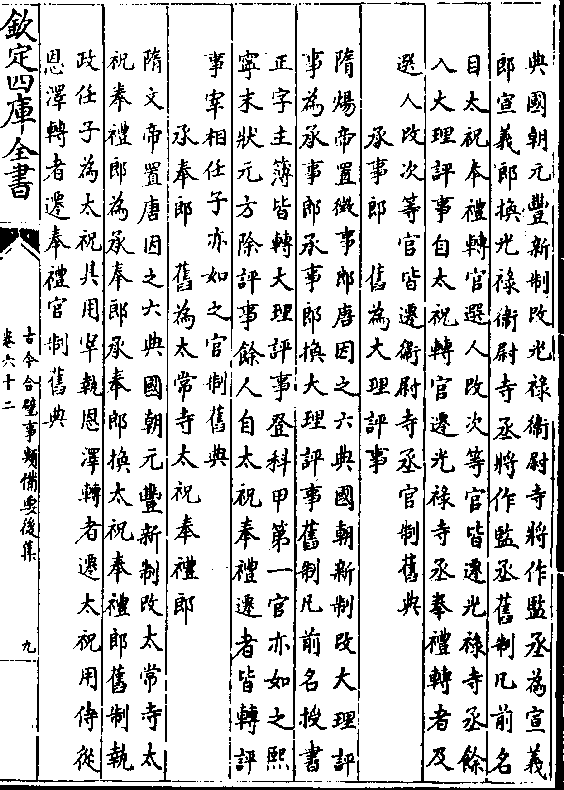 典國朝元豐新制改光祿衛尉寺將作監丞為宣義
郎宣義郎換光祿衛尉寺丞將作監丞舊制凡前名
目太祝奉禮轉官選人改次等官皆遷光祿寺丞餘
人大理評事自太祝轉官遷光祿寺丞奉禮轉者及
選人改次等官皆遷衛尉寺丞官制舊典
承事郎　舊為大理評事
隋煬帝置徴事郎唐因之六典國朝新制改大理評
事為承事郎承事郎換大理評事舊制凡前名授書
正字主簿皆轉大理評事登科甲第一官亦如之熙
寧末狀元方除評事餘人自太祝奉禮遷者皆轉評
事宰相任子亦如之官制舊典
承奉郎　舊為太常寺太祝奉禮郎
隋文帝置唐因之六典國朝元豐新制改太常寺太
祝奉禮郎為承奉郎承奉郎換太祝奉禮郎舊制執
政任子為太祝其用宰執恩澤轉者遷太祝用侍從
恩澤轉者遷奉禮官制舊典
欽定四庫全書
古今合璧事類備要後集
卷六十二
九